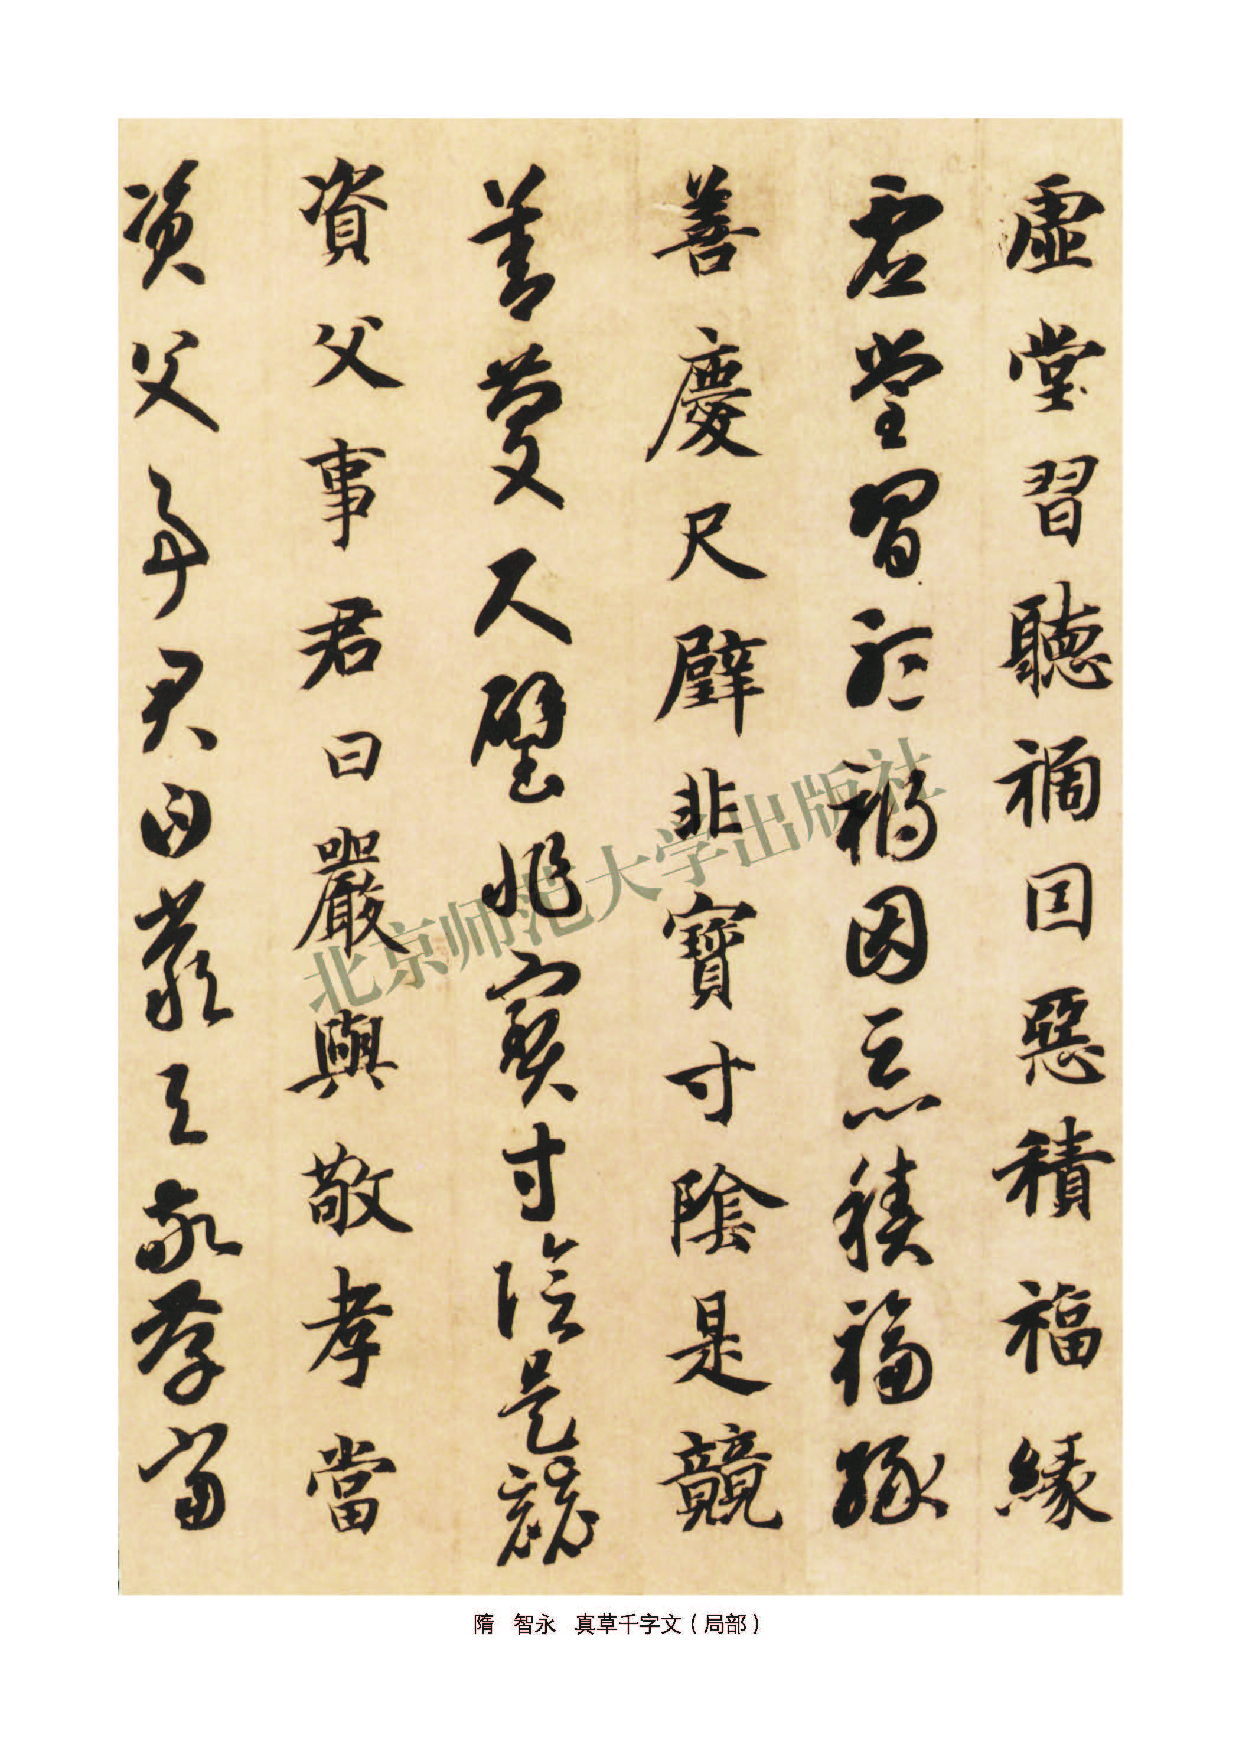 虛堂習聽禍因惡積福緣
虛堂習聽禍因惡積福緣
善慶尺璧非寶寸陰是競
善慶尺璧非寶寸陰是競
資父事君曰嚴與敬孝當
資父事君曰嚴與敬孝當
北京师范大学出版社
隋 智永 真草千字文（局部）